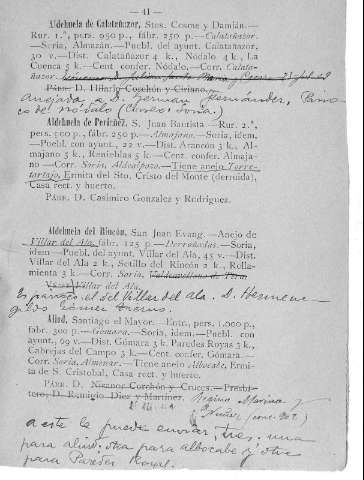 — 41 —
Aldehuela de Calatañazor, Stos. Cosme y Damián.—
Rur. 1.ª, pers. 950 p., fábr. 250 p.—Calatañazor.
—Soria, Almazán.—Puebl. del ayunt. Calatañazor,
30 v.—Dist. Calatañazor 4 k., Nódalo 4 k., La
Cuenca 5 k.—Cent. confer. Nódalo.—Corr. Calata-
ñazor.
Párr. D. Hilario Corchón y Ciriano.
anejada a D. German Fernández, Párro
co de Nódalo (Cueva Soria.)
Aldehuela de Periáñez, S. Juan Bautista—Rur. 2.ª,
pers. 900 p., fábr. 250 p.—Almajano.—Soria, idem,
—Puebl. con ayunt., 22 v.—Dist. Arancón 3 k., Al-
majano 5 k., Renieblas 5 k.—Cent. confer. Almaja-
no—Corr. Soria, Aldealpozo.—Tiene anejo Torre-
tartajo, Ermita del Sto. Cristo del Monte (derruida),
Casa rect. y huerto.
Párr. D. Casimiro Gonzalez y Rodriguez.
Aldehuela del Rincón, San Juan Evang.—Anejo de
Villar del Ala, fábr. 125 p.—Derroñadas.—Soria,
idem—Puebl. del ayunt. Villar del Ala, 45 v.—Dist.
Villar del Ala 2 k., Sotillo del Rincón 2 k., Rolla-
mienta 3 k—Corr. Soria, Valdeavellano de Tera
Villar del Ala.
Es parroco el del Villar del ala. D. Hermene-
gildo Gómez
Aliud, Santiago el Mayor.—Entr., pers. 1.000 p.,
fábr. 300 p.—Gómara.—Soria, idem.—Puebl. con
ayunt., 69 v.—Dist. Gómara 3 k. Paredes Royas 3 k.,
Cabrejas del Campo 3 k.—Cent. confer. Gómara.—
Corr. Soria, Almenar.—Tiene anejo Albocabe, Ermi-
ta de S. Cristobal, Casa rect. y huerto.
Párr. D. Nicanor Corchón y Cruces.—Presbí-
tero, D. Remigio Diez y Martínez.
a este le puede enviar, tres: una
para aliud: otra para albocabe y otra
para Paredes Royas.